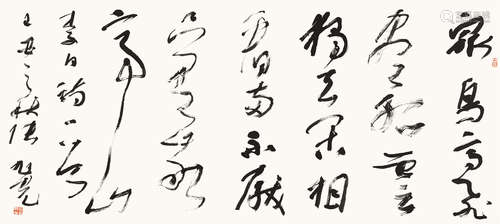 眾鳥高飛
盡孤雲
獨去閑相
看兩不厭
只有敬
亭山
李白詩一首
之秋